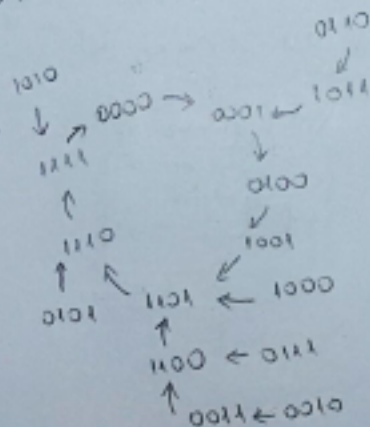 0110
1010
0000 → 0001 ← 1011
1111
0100
1110
1001
0101
1101 ← 1000
1100 ← 0111
0011 ← 0010